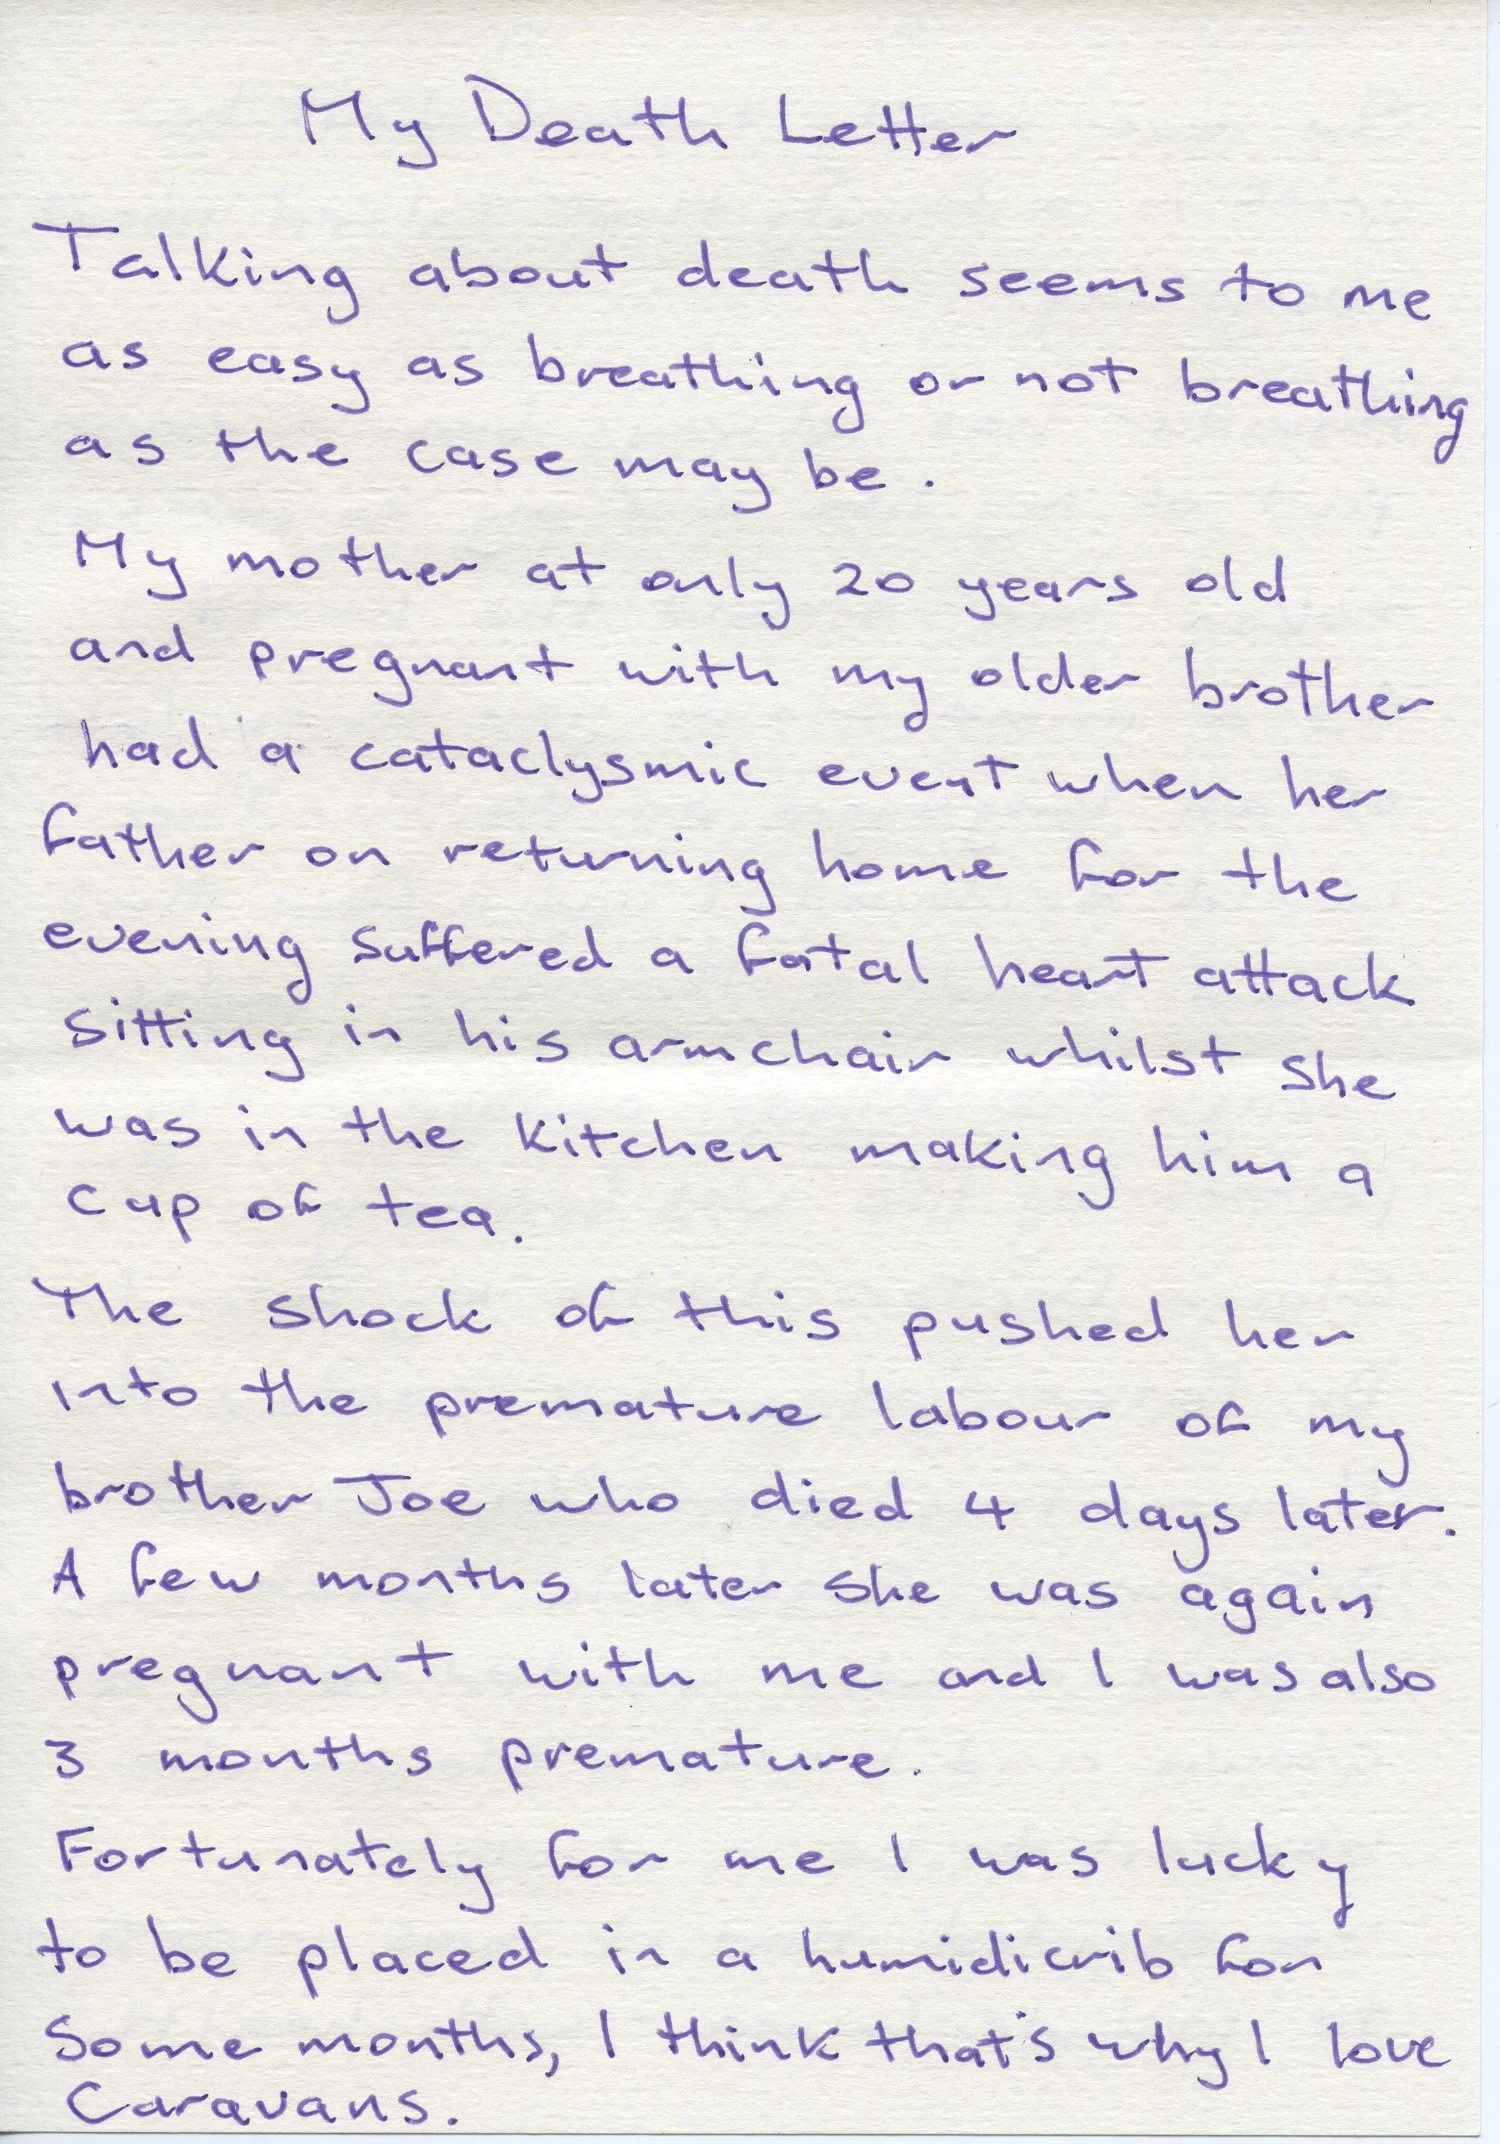 My Death Letter
Talking about death seems to me
as easy as breathing or not breathing
as the case may be.
My mother at only 20 years old
and pregnant with my older brother
had a cataclysmic event when her
father on returning home for the
evening suffered a fatal heart attack
sitting in his armchair whilst she
was in the kitchen making him a
cup of tea.
The shock of this pushed her
into the premature labour of my
brother Joe who died 4 days later.
A few months later she was again
pregnant with me and I was also
3 months premature.
Fortunately for me I was lucky
to be placed in a humidicrib for
Some months, I think that's why I love
Caravans.